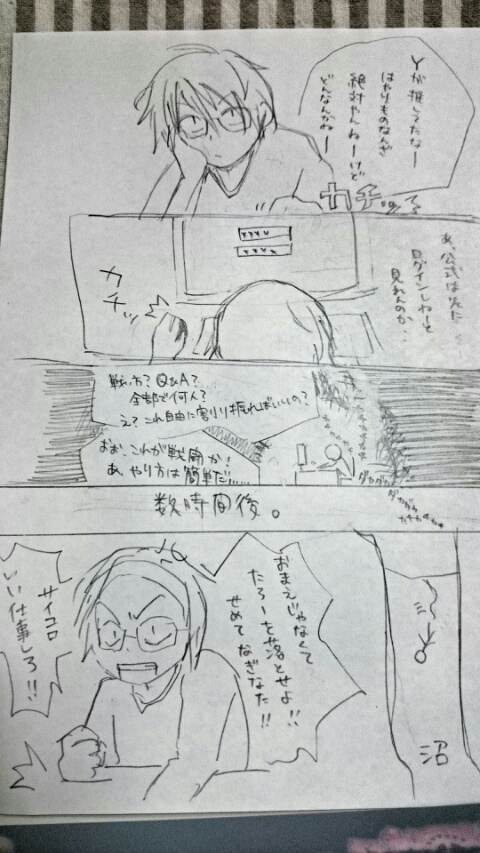 Yが推してたなー
はやりものなんざ
絶対やんねーけど
どんなんかねー
カチッ
あ、公式は先に
ログインしねーと
見れんのか…
xxxx
xxxx
カチッ
戦い方？Q&A？
全部で何人？
え？これ自由に割り振ればいいの？
おお、これが戦闘か！
あ、やり方は簡単だ……
ダカダカ
数時間後。
おまえじゃなくて
たろーを落とせよ!!
せめてなぎなた!!
サイコロ
いい仕事しろ!!
沼